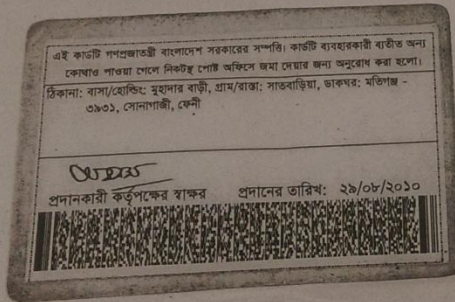 এই কার্ডটি গণপ্রজাতন্ত্রী বাংলাদেশ সরকারের সম্পত্তি। কার্ডটি ব্যবহারকারী ব্যতীত অন্য
কোথাও পাওয়া গেলে নিকটস্থ পোষ্ট অফিসে জমা দেয়ার জন্য অনুরোধ করা হলো।
ঠিকানা: বাসা/হোল্ডিং: মুহাদার বাড়ী, গ্রাম/রাস্তা: সাতবাড়িয়া, ডাকঘর: মতিগঞ্জ -
৩৯৩১, সোনাগাজী, ফেনী
প্রদানকারী কর্তৃপক্ষের স্বাক্ষর প্রদানের তারিখ: ২৯/০৮/২০১০